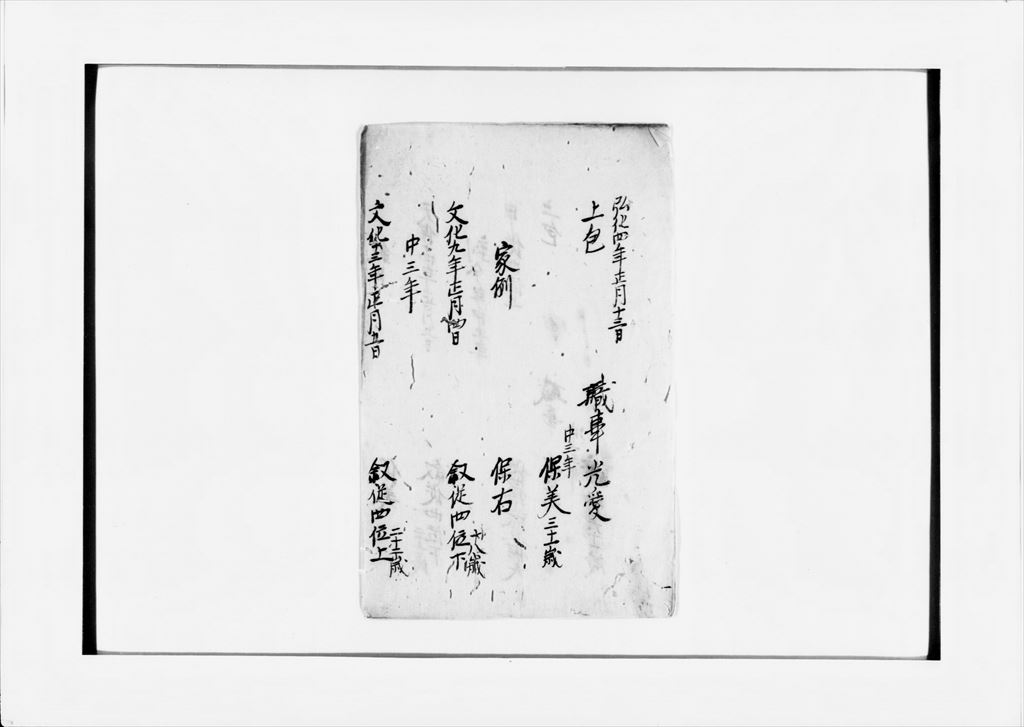 弘化四年正月十三日
上包
職事光愛
中三年
保美三十一歳
家例
保右
文化九年正月四日
叙従四位下十八歳
中三年
文化十三年正月五日
叙従四位上二十二歳